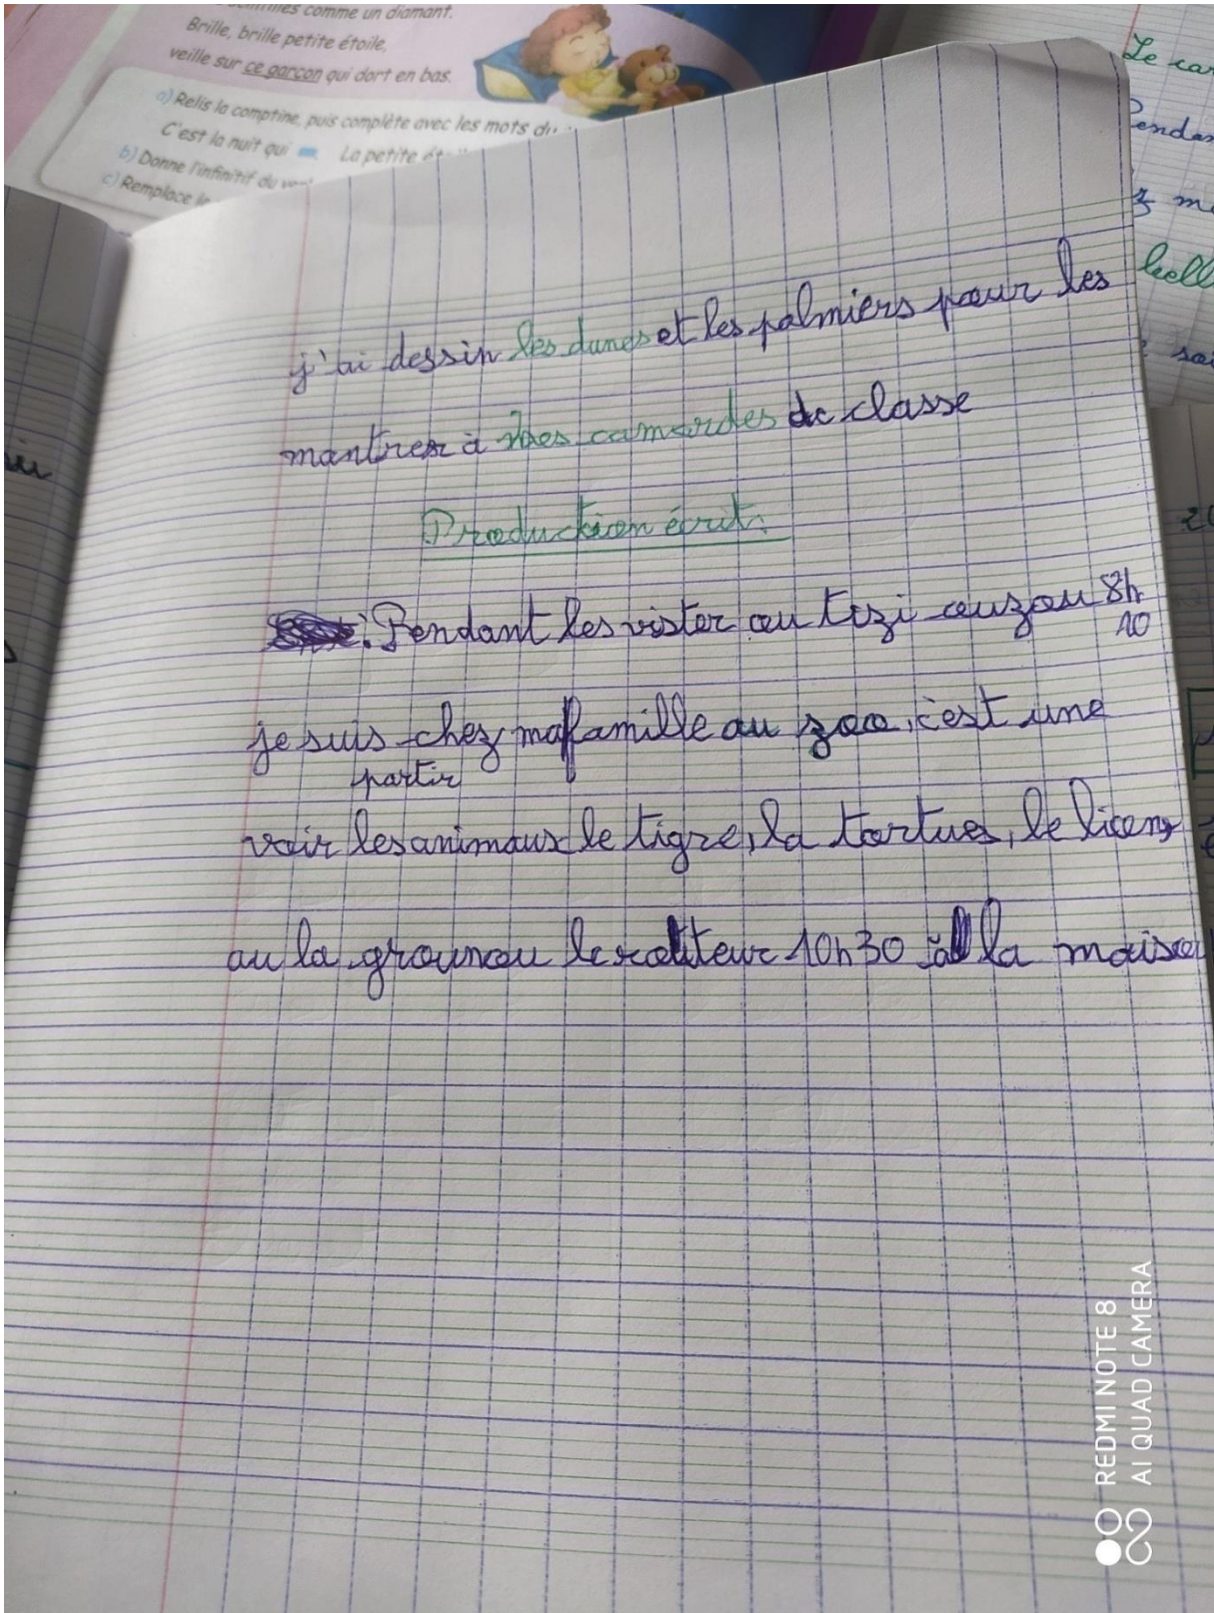 comme un diamant.
Brille, brille petite étoile,
veille sur ce garçon qui dort en bas.
a) Relis la comptine, puis complète avec les mots du
C'est la nuit qui La petite
b) Donne l'infinitif du
c) Remplace le
Le car
Pendan
z m
bell
j'ai dessin les dunes et les palmiers pour les
mantrer à Mes camardes de classe
Production écrit:
Pendant les vister au tizi ouzou 8h
10
je suis chez ma famille au zoo, c'est une
partir
voir les animaux le tigre, la tortues, le licons
au la grounou le 10h30 à la maiso
REDMI NOTE 8
AI QUAD CAMERA